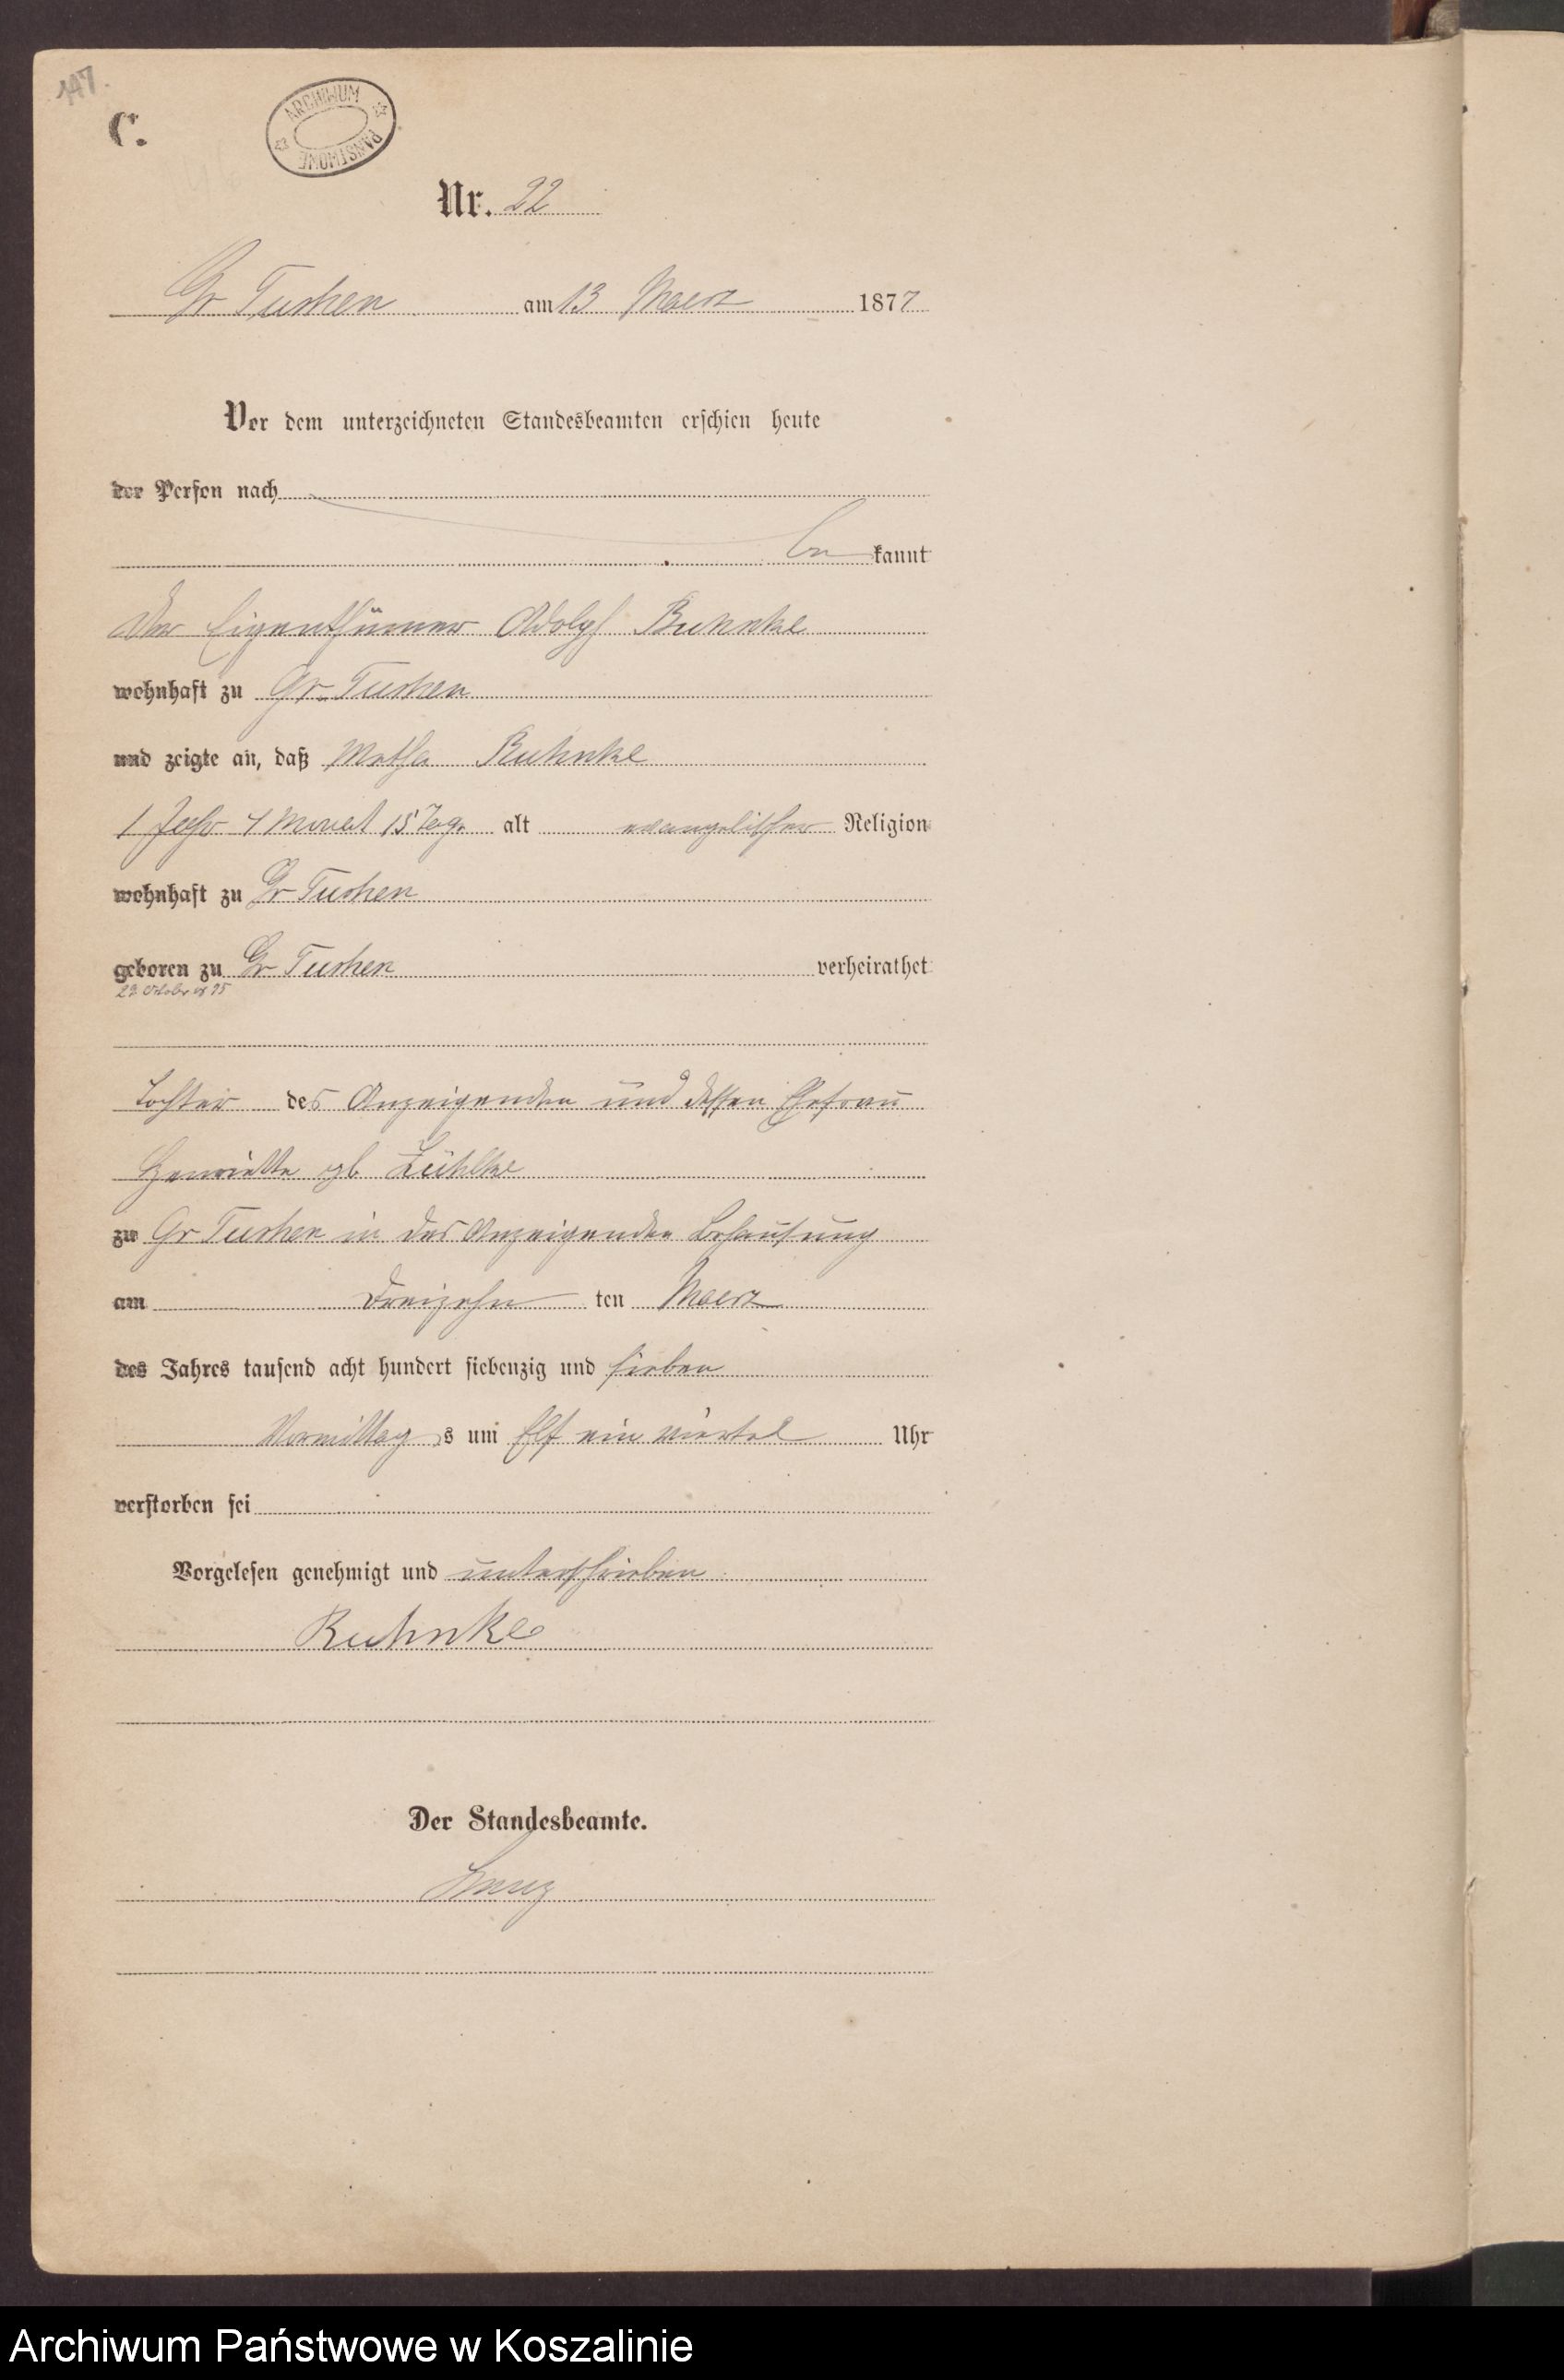 147.
C.
ARCHIWUM PAŃSTWOWE
Nr. 22
Gr Tuchen am 13 Maerz 1877
Vor dem unterzeichneten Standesbeamten erschien heute
der Person nach
be kannt
der Eigenthümer Adolph Ruhnke
wohnhaft zu Gr. Tuchen
und zeigte an, daß Ruhnke
1 Jahr 4 Monat 15 Tage alt evangelischer Religion
wohnhaft zu Gr Tuchen
geboren zu Gr Tuchen verheirathet
29 October 75
Tochter des Anzeigenden und dessen Ehefrau
Henriette gb Lühlke
zu Gr Tuchen in des Anzeigenden Behausung
am dreizehn ten Maerz
des Jahres tausend acht hundert siebenzig und sieben
Vormittag s um Elf ein viertel Uhr
verstorben sei
Vorgelesen genehmigt und unterschrieben
Ruhnke
Der Standesbeamte.
Archiwum Państwowe w Koszalinie